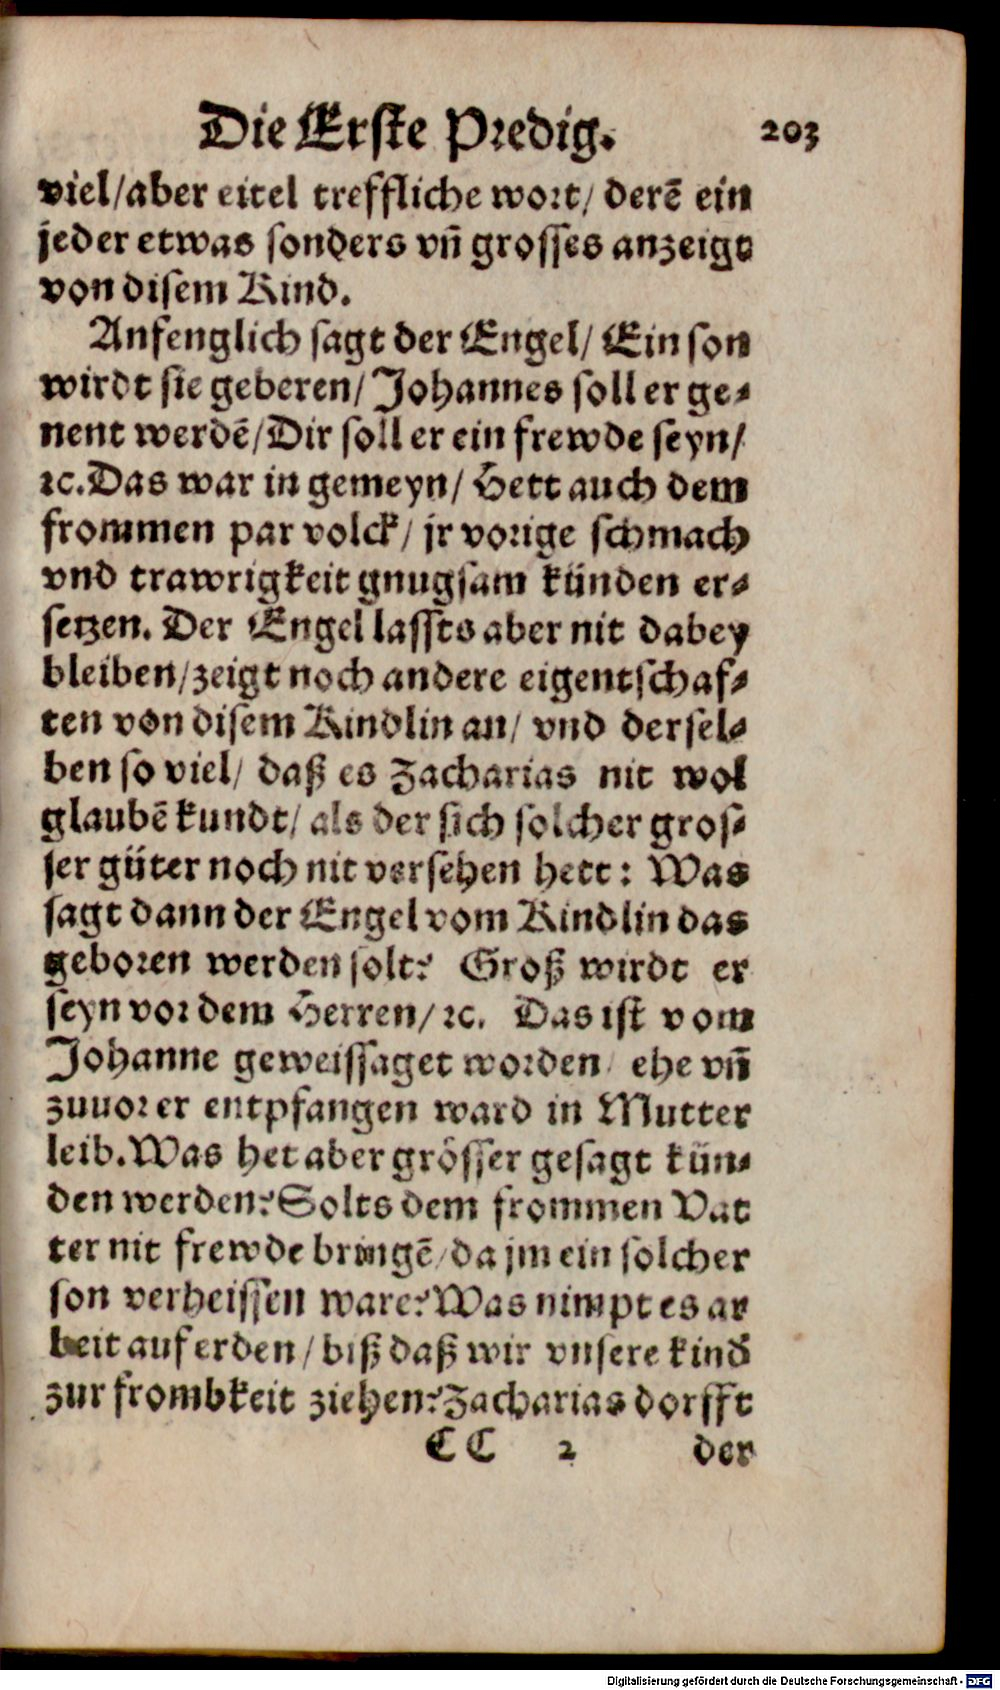 Die Erste Predig. 203
viel/aber eitel treffliche wort/ derē ein
jeder etwas sonders vñ grosses anzeigt
von disem Kind.
Anfenglich sagt der Engel/ Ein son
wirdt sie geberen/ Johannes soll er ge⸗
nent werdē/Dir soll er ein frewde seyn/
ꝛc.Das war in gemeyn/ Hett auch dem
frommen par volck/ jr vorige schmach
vnd trawrigkeit gnugsam künden er⸗
setzen. Der Engel lassts aber nit dabey
bleiben/zeigt noch andere eigentschaf⸗
ten von disem Kindlin an/ vnd dersel⸗
ben so viel/ daß es Zacharias nit wol
glaubē kundt/ als der sich solcher gros⸗
ser güter noch nit versehen hett: Was
sagt dann der Engel vom Kindlin das
geboren werden solt? Groß wirdt er
seyn vor dem Herren/ ꝛc. Das ist vom
Johanne geweissaget worden/ ehe vñ
zuuor er entpfangen ward in Mutter
leib. Was het aber grösser gesagt kün⸗
den werden? Solts dem frommen Vat
ter nit frewde bringē/ da jm ein solcher
son verheissen ware? Was nimpt es ar
beit auf erden/ biß daß wir vnsere kind
zur frombkeit ziehen? Zacharias dorfft
CC 2 der
Digitalisierung gefördert durch die Deutsche Forschungsgemeinschaft - DFG